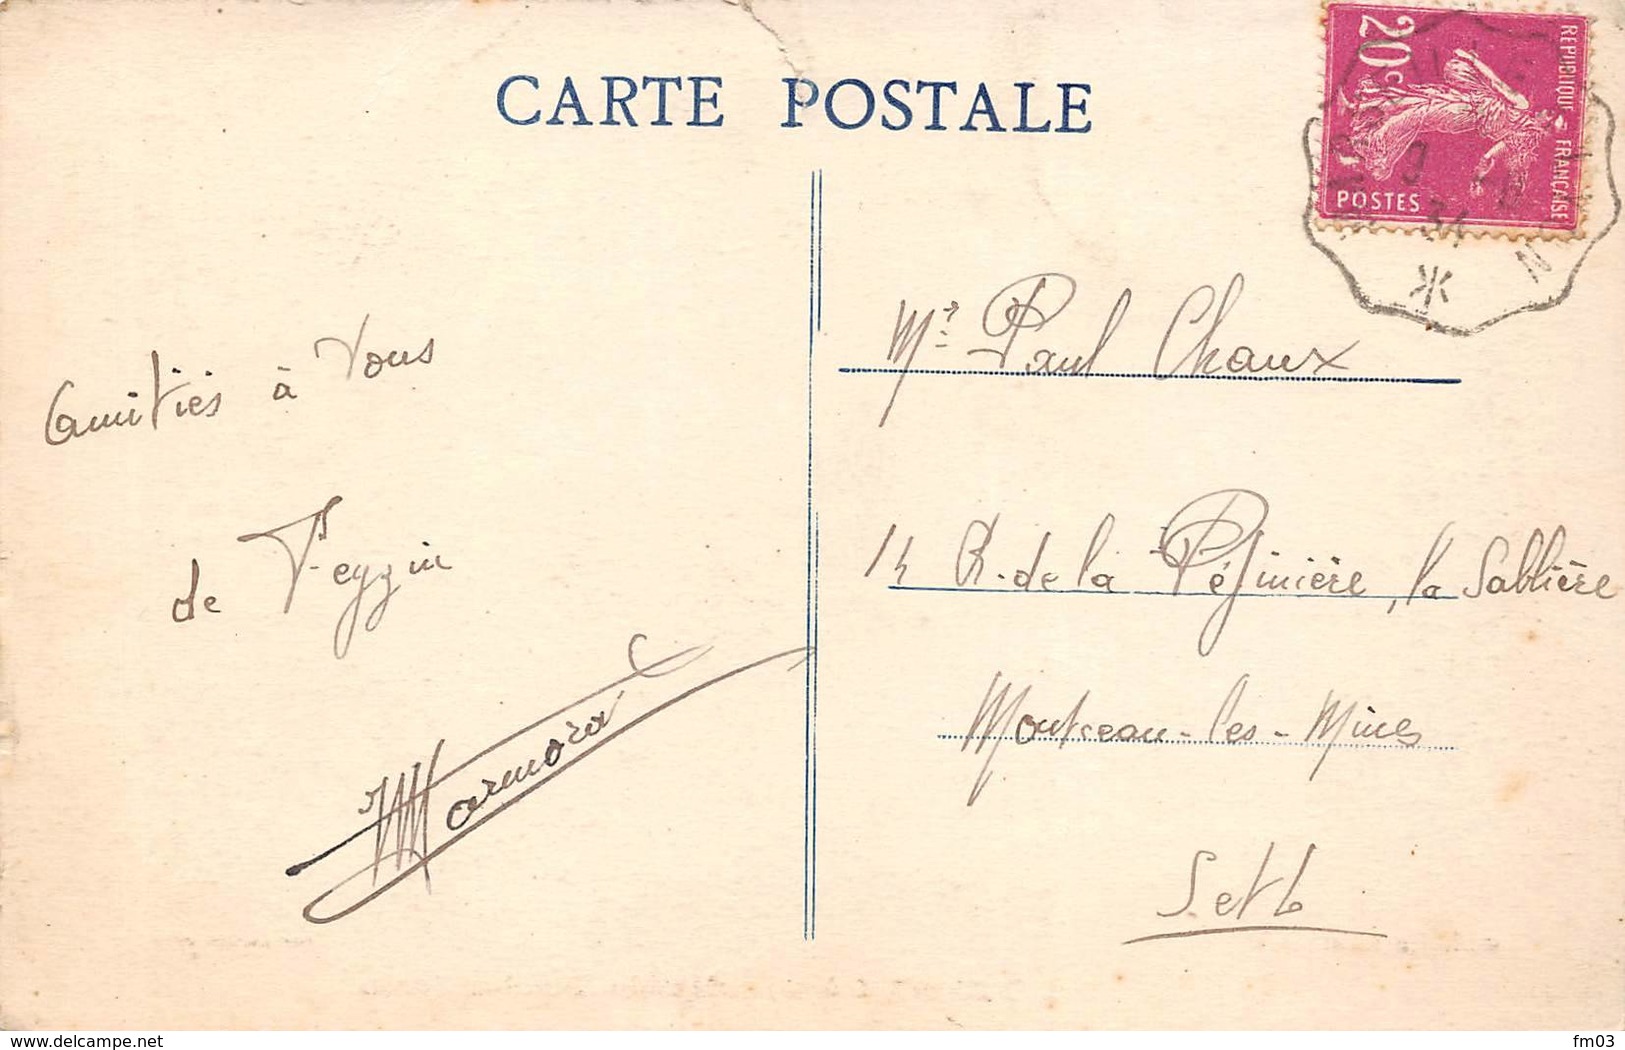 CARTE POSTALE
20c
REPUBLIQUE FRANÇAISE
POSTES
34
Amitiés à Vous
de Feyzin
Mr Paul Chaux
14 R. de la Pépinière, la Sablière
Montceau-les-Mines
S et L
www.delcampe.net
fm03